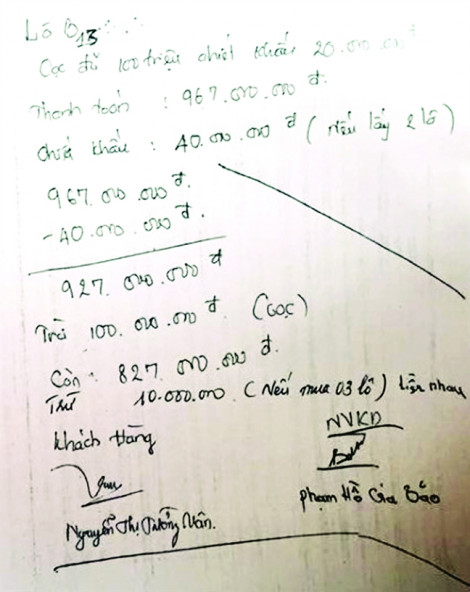 Lô B13
Cọc đủ 100 triệu chiết khấu 20.000.000 đ
Thanh toán : 967.000.000 đ.
chiết khấu : 40.000.000 đ ( Nếu lấy 2 lô )
967.000.000 đ.
-40.000.000 đ.
927.000.000 đ
Trả 100.000.000 đ. (cọc)
Còn : 827.000.000 đ.
Trừ 10.000.000 . ( Nếu mua 03 lô ) liền nhau
Khách Hàng
NVKD
Nguyễn Thị Tường Vân.
Phạm Hồ Gia Bảo